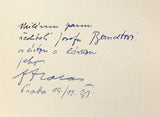 Milému panu
řediteli Josefu Brandtovi
s úctou a láskou
jeho
Praha 19/12. 31